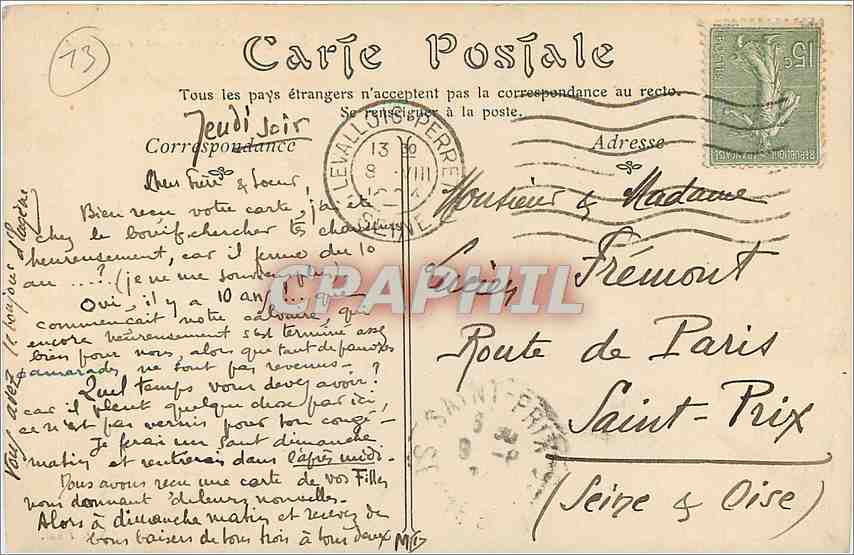 13
Carte Postale
Tous les pays étrangers n'acceptent pas la correspondance au recto.
Se renseigner à la poste.
Correspondance
Adresse
15c
POSTES
RÉPUBLIQUE FRANÇAISE
LEVALLOIS-PERRET
13 30
8 VIII
SEINE
Jeudi soir
Chers Frère & Soeur,
Bien reçu votre carte, j'ai été
chez le bouif chercher tes chaussures
heureusement, car il ferme du 10
au ....? (je ne me souviens plus)
Oui, il y a 10 ans ... que
commençait notre calvaire, qui
encore heureusement s'est terminé assez
bien pour nous, alors que tant de pauvres
camarades ne sont pas revenus.-
Quel temps vous devez avoir?
car il pleut quelque chose par ici,
ce n'est pas vernis pour ton congé -
Je ferai un saut dimanche
matin et rentrerai dans l'après midi.
Nous avons reçu une carte de vos Filles
nous donnant de leurs nouvelles.-
Alors à dimanche matin et recevez de
bons baisers de tous trois à tous deux
Vous avez le bonjour d'Eugène
Monsieur & Madame
Lucien Frémont
Route de Paris
Saint-Prix
(Seine & Oise)
SAINT-PRIX
CPARHIL